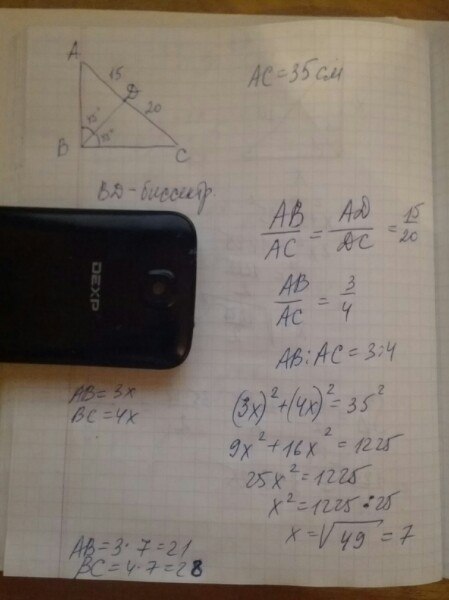 A
15
D
20
45°
45°
B
C
AC = 35 см
BD - биссектр.
AB/AC = AD/DC = 15/20
AB/AC = 3/4
AB : AC = 3 : 4
DEXP
AB = 3x
BC = 4x
(3x)² + (4x)² = 35²
9x² + 16x² = 1225
25x² = 1225
x² = 1225 : 25
x = √49 = 7
AB = 3 · 7 = 21
BC = 4 · 7 = 28